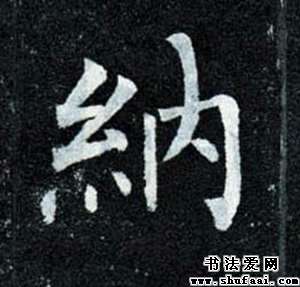 納
书法爱网
www.shufaai.com